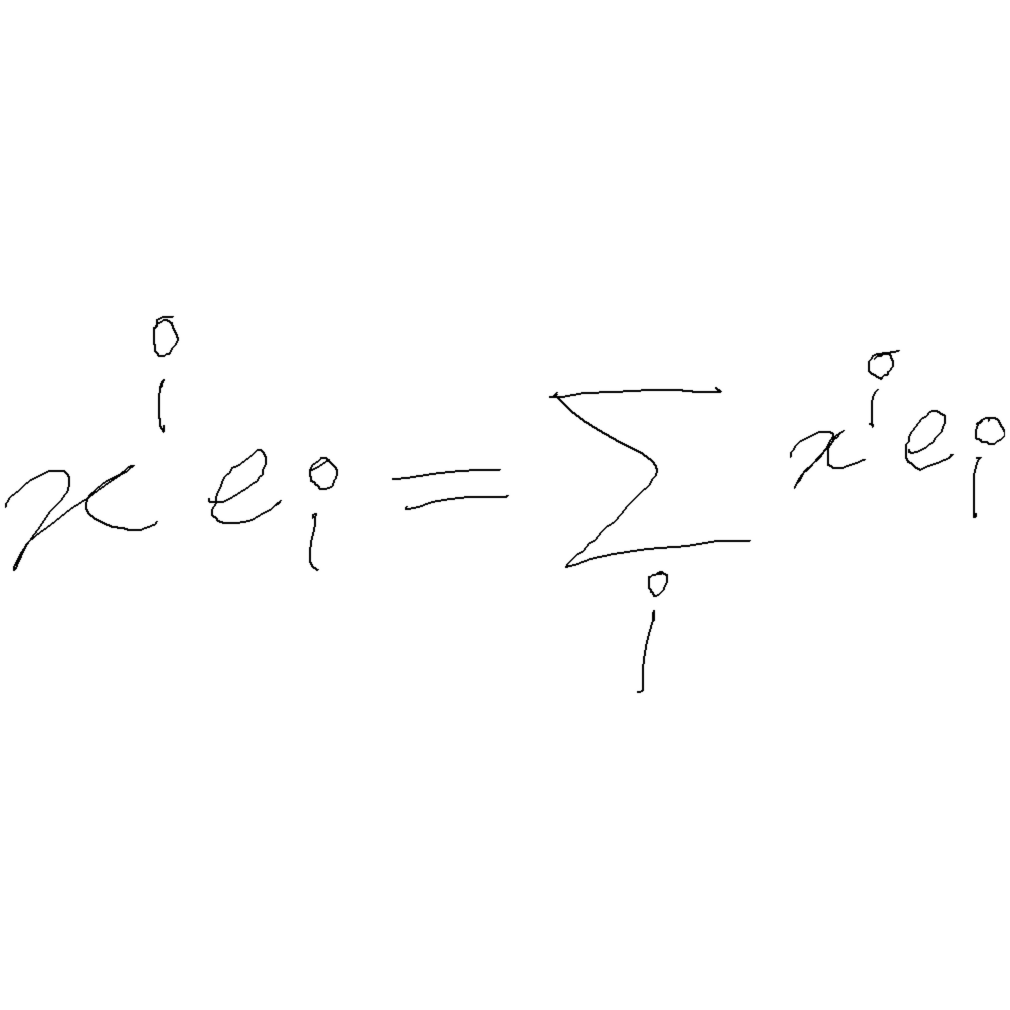 $x^i e_i = \sum_i x^i e_i$